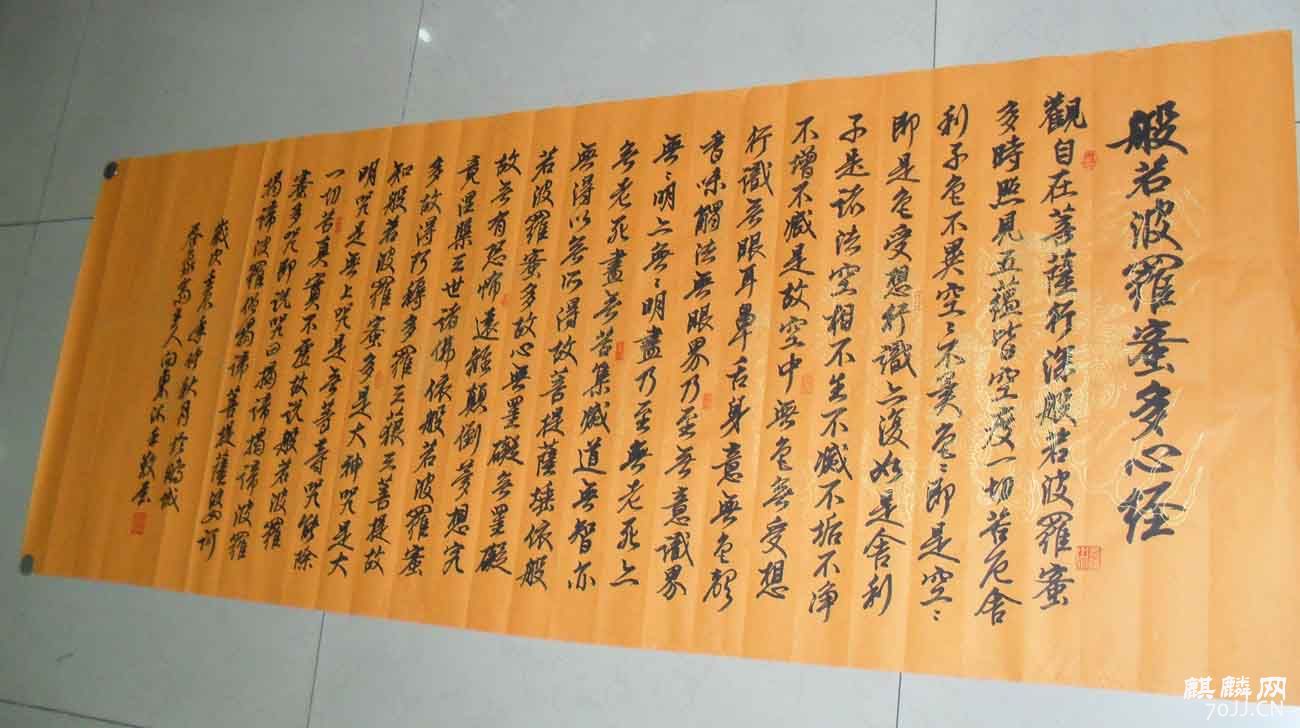 般若波羅蜜多心経
觀自在菩薩行深般若波羅蜜
多時照見五蘊皆空度一切苦厄舍
利子色不異空〻不異色〻即是空〻
即是色受想行識亦復如是舍利
子是诸法空相不生不滅不垢不净
不增不滅是故空中無色無受想
行識无眼耳鼻舌身意無色聲
香味觸法无眼界乃至无意識界
無〻明亦無〻明盡乃至無老死亦
无老死盡无苦集滅道無智亦
無得以无所得故菩提薩埵依般
若波羅蜜多故心無罣礙无罣礙
故无有恐怖遠離顛倒夢想究
竟涅槃三世诸佛依般若波羅蜜
多故得阿耨多羅三藐三菩提故
知般若波羅蜜多是大神咒是大
明咒是无上咒是无等等咒能除
一切苦真實不虚故说般若波羅
蜜多咒即说咒曰揭谛揭谛波羅
揭谛波羅僧揭谛菩提薩婆訶
麒麟网
70JJ.CN